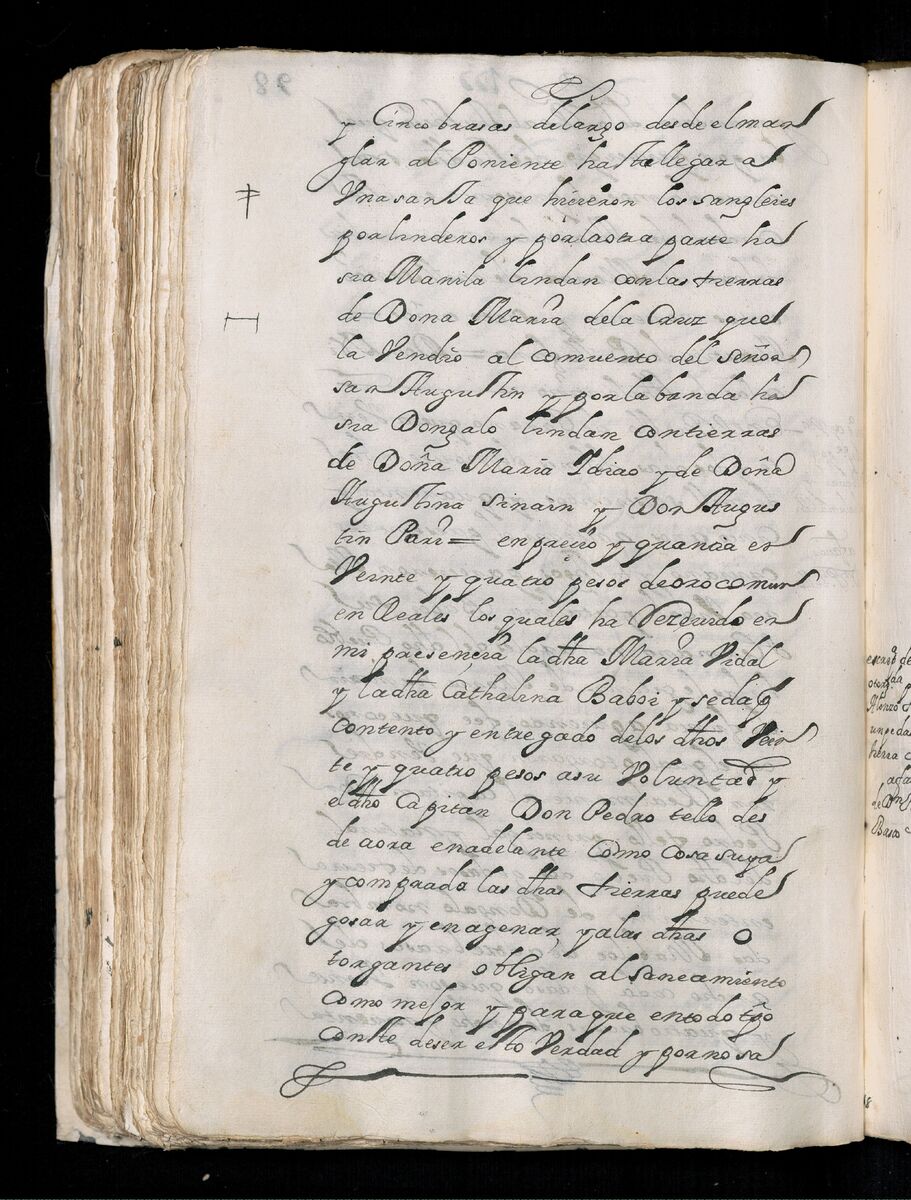 y Cinco brasas delargo desde el man
glar al Poniente hasta llegar a
Vna sanja que hicieron los sangleies
por linderos y por la otra parte ha
sia Manila lindan con las tierras
de Dona Maria dela Cruz que
la Vendio al comuento del señor
san Augustin y por la banda ha
sia Dongalo lindan con tierras
de Doña Maria Ydiao y de Doña
Augustina Sinain y Don Augus
tin Pari = en precio y quancia en
Veinte y quatro pesos de oro comun
en Reales los quales ha Rezeuido en
mi presencia la dha Maria Vidal
y la dha Cathalina Baboi y se da p
contento y entregado delos dhos Vein
te y quatro pesos a su Voluntad y
el dho Capitan Don Pedro tello des
de aora en adelante Como Cosa suya
y comprada las dhas tierras puede
gosar y enagenar y a las dhas O
torgantes obligan al saneamiento
como mejor y para que en todo tpo
conste de ser esto Verdad y por no sa